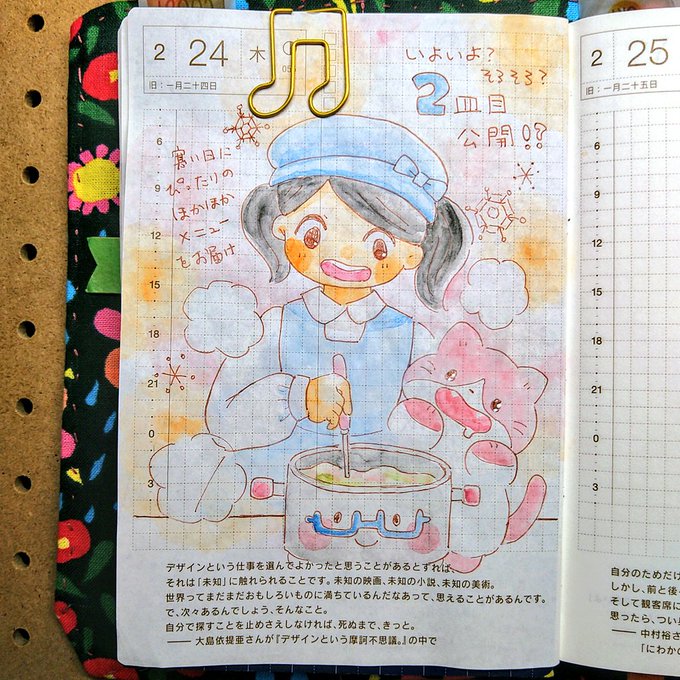 2 24 木
旧:一月二十四日
いよいよ?
そろそろ?
2皿目
公開!?
寒い日に
ぴったりの
ほかほか
メニュー
をお届け
6
9
12
15
18
21
0
3
デザインという仕事を選んでよかったと思うことがあるとすれば、
それは「未知」に触れられることです。未知の映画、未知の小説、未知の美術。
世界ってまだまだおもしろいものに満ちているんだなあって、思えることがあるんです。
で、次々あるんでしょう、そんなこと。
自分で探すことを止めさえしなければ、死ぬまで、きっと。
―― 大島依提亜さんが『デザインという摩訶不思議。』の中で
2 25
旧:一月二十五日
6
9
12
15
18
21
0
3
自分のためだけ
しかし、前と後
そして観客席に
思ったら、つい
―― 中村裕さ
「にわかの